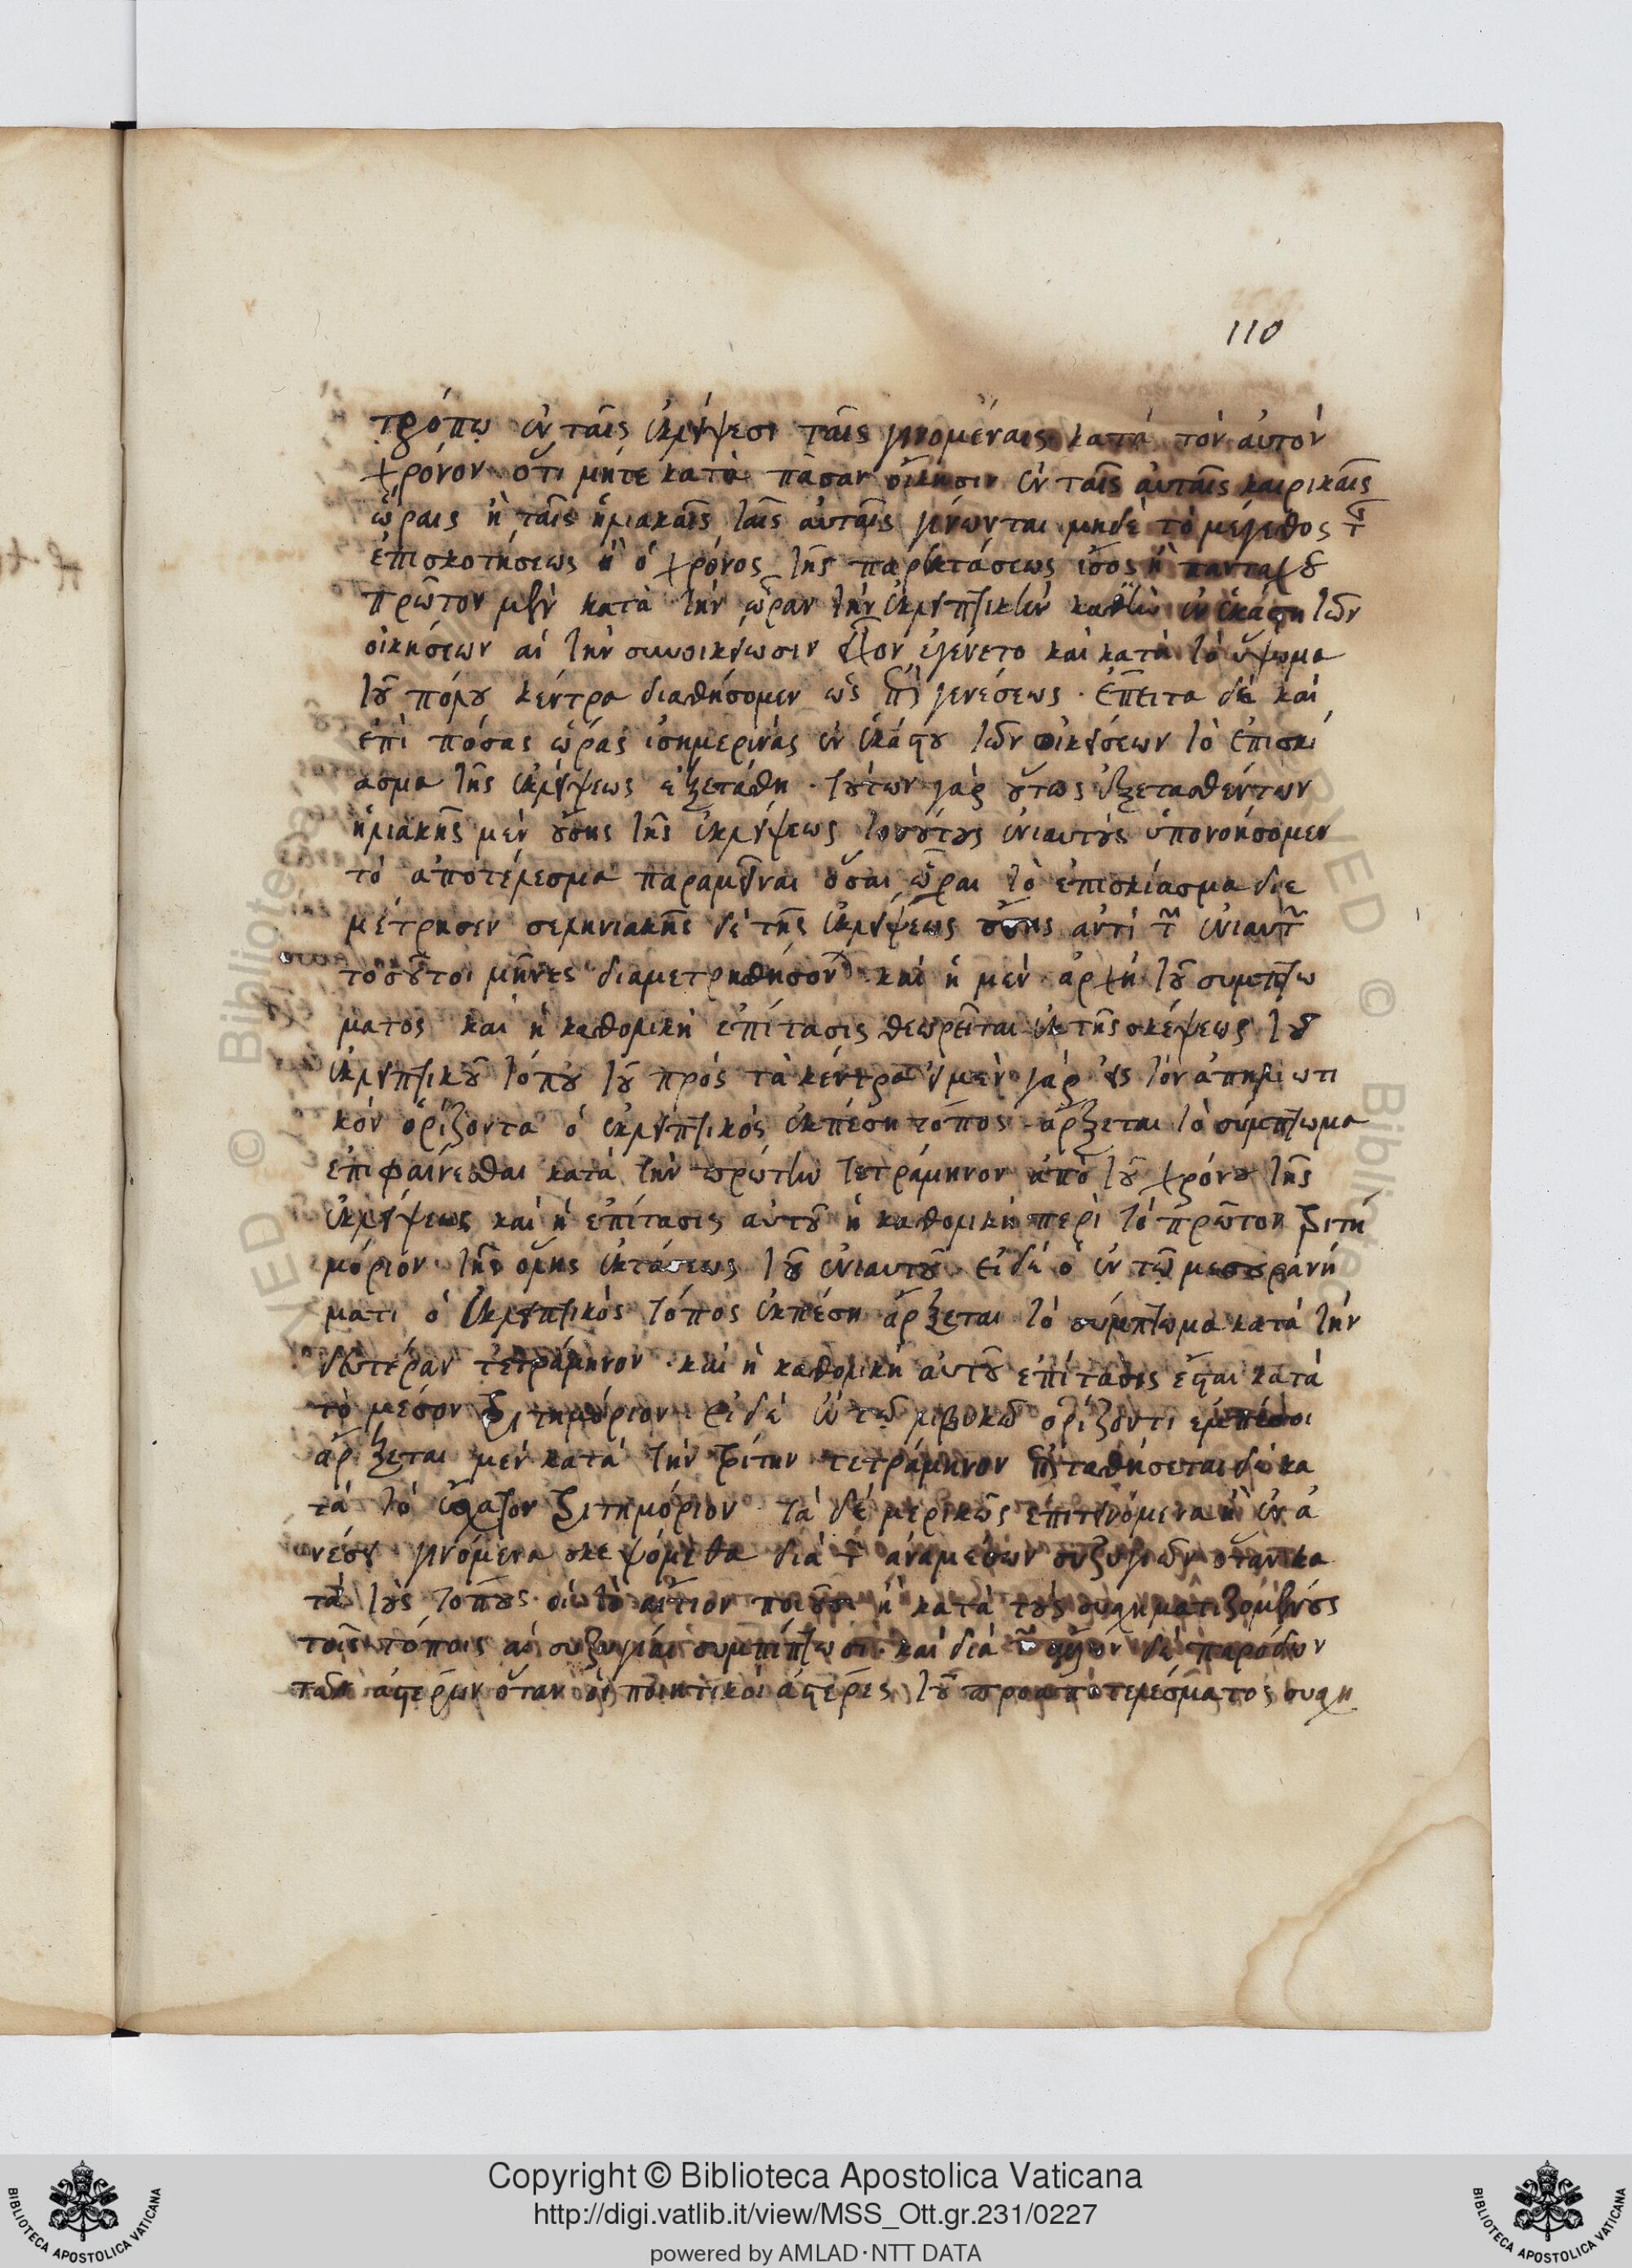 110
τρόπῳ ἐν ταῖς ἐκλείψεσι ταῖς γινομέναις κατὰ τὸν αὐτὸν
χρόνον ὅτι μήτε κατὰ πᾶσαν οἴκησιν ἐν ταῖς αὐταῖς καιρικαῖς
ὥραις ἢ ταῖς ἡλιακαῖς ταῖς αὐταῖς γίνωνται μηδὲ τὸ μέγεθος τῆς
ἐπισκοτήσεως ἢ ὁ χρόνος τῆς παρεκτάσεως ἴσος ᾖ πανταχοῦ
πρῶτον μὲν κατὰ τὴν ὥραν τὴν ἐκλειπτικὴν καθ' ἣν ἐν ἑκάστῃ τῶν
οἰκήσεων αἳ τὴν συνοικείωσιν ἐγένετο καὶ κατὰ τὸ ὕψωμα
τοῦ πόλου κέντρα διαθήσομεν ὡς ἐπὶ γενέσεως · ἔπειτα δὲ καὶ
ἐπὶ πόσας ὥρας ἰσημερινὰς ἐν ἑκάστου τῶν οἰκήσεων τὸ ἐπισκί
ασμα τῆς ἐκλείψεως ἐξετάθη · τούτων γὰρ οὕτως ἐξετασθέντων
ἡλιακῆς μὲν οὔσης τῆς ἐκλείψεως τοσούτους ἐνιαυτοὺς ὑπονοήσομεν
τὸ ἀποτέλεσμα παραμεῖναι ὅσαι ὧραι τὸ ἐπισκίασμα διε
μέτρησεν σεληνιακῆς δὲ τῆς ἐκλείψεως οὔσης ἀντὶ τῶν ἐνιαυτῶν
τοσοῦτοι μῆνες διαμετρηθήσονται καὶ ἡ μὲν ἀρχὴ τοῦ συμπτώ
ματος καὶ ἡ καθολικὴ ἐπίτασις θεωρεῖται ἐκ τῆς σκέψεως τοῦ
ἐκλειπτικοῦ τόπου τοῦ πρὸς τὰ κέντρα εἰ μὲν γὰρ εἰς τὸν ἀπηλιωτι
κὸν ὁρίζοντα ὁ ἐκλειπτικὸς ἐκπέσῃ τόπος ἄρξεται τὸ σύμπτωμα
ἐπιφαίνεσθαι κατὰ τὴν πρώτην τετράμηνον ἀπὸ τοῦ χρόνου τῆς
ἐκλείψεως καὶ ἡ ἐπίτασις αὐτοῦ ἡ καθολικὴ περὶ τὸ πρῶτον τριτη
μόριον τῆς ὅλης ἐκτάσεως τοῦ ἐνιαυτοῦ εἰ δὲ ὁ ἐν τῷ μεσουρανή
ματι ὁ ἐκλειπτικὸς τόπος ἐκπέσῃ ἄρξεται τὸ σύμπτωμα κατὰ τὴν
δευτέραν τετράμηνον · καὶ ἡ καθολικὴ αὐτοῦ ἐπίτασις ἔσται κατὰ
τὸ μέσον τριτημόριον · εἰ δὲ ἐν τῷ λιβυκῷ ὁρίζοντι ἐμπέσοι
ἄρξεται μὲν κατὰ τὴν τρίτην τετράμηνον ἐπιταθήσεται δὲ κα
τὰ τὸ ἔσχατον τριτημόριον · τὰ δὲ μερικῶς ἐπιτεινόμενα ἢ ἐν ἀ
νέσει γινόμενα σκεψόμεθα διὰ τῶν ἀναμέσων συζυγιῶν ὅταν κα
τὰ τοὺς τόπους οἳ τὸ αἴτιον ποιοῦσι ἢ κατὰ τοὺς συσχηματιζομένους
τοῖς τόποις αἱ συζυγίαι συμπίπτωσι · καὶ διὰ τῶν δὲ παρόδων
τῶν ἀστέρων ὅταν οἱ ποιητικοὶ ἀστέρες τοῦ προαποτελέσματος συσχη